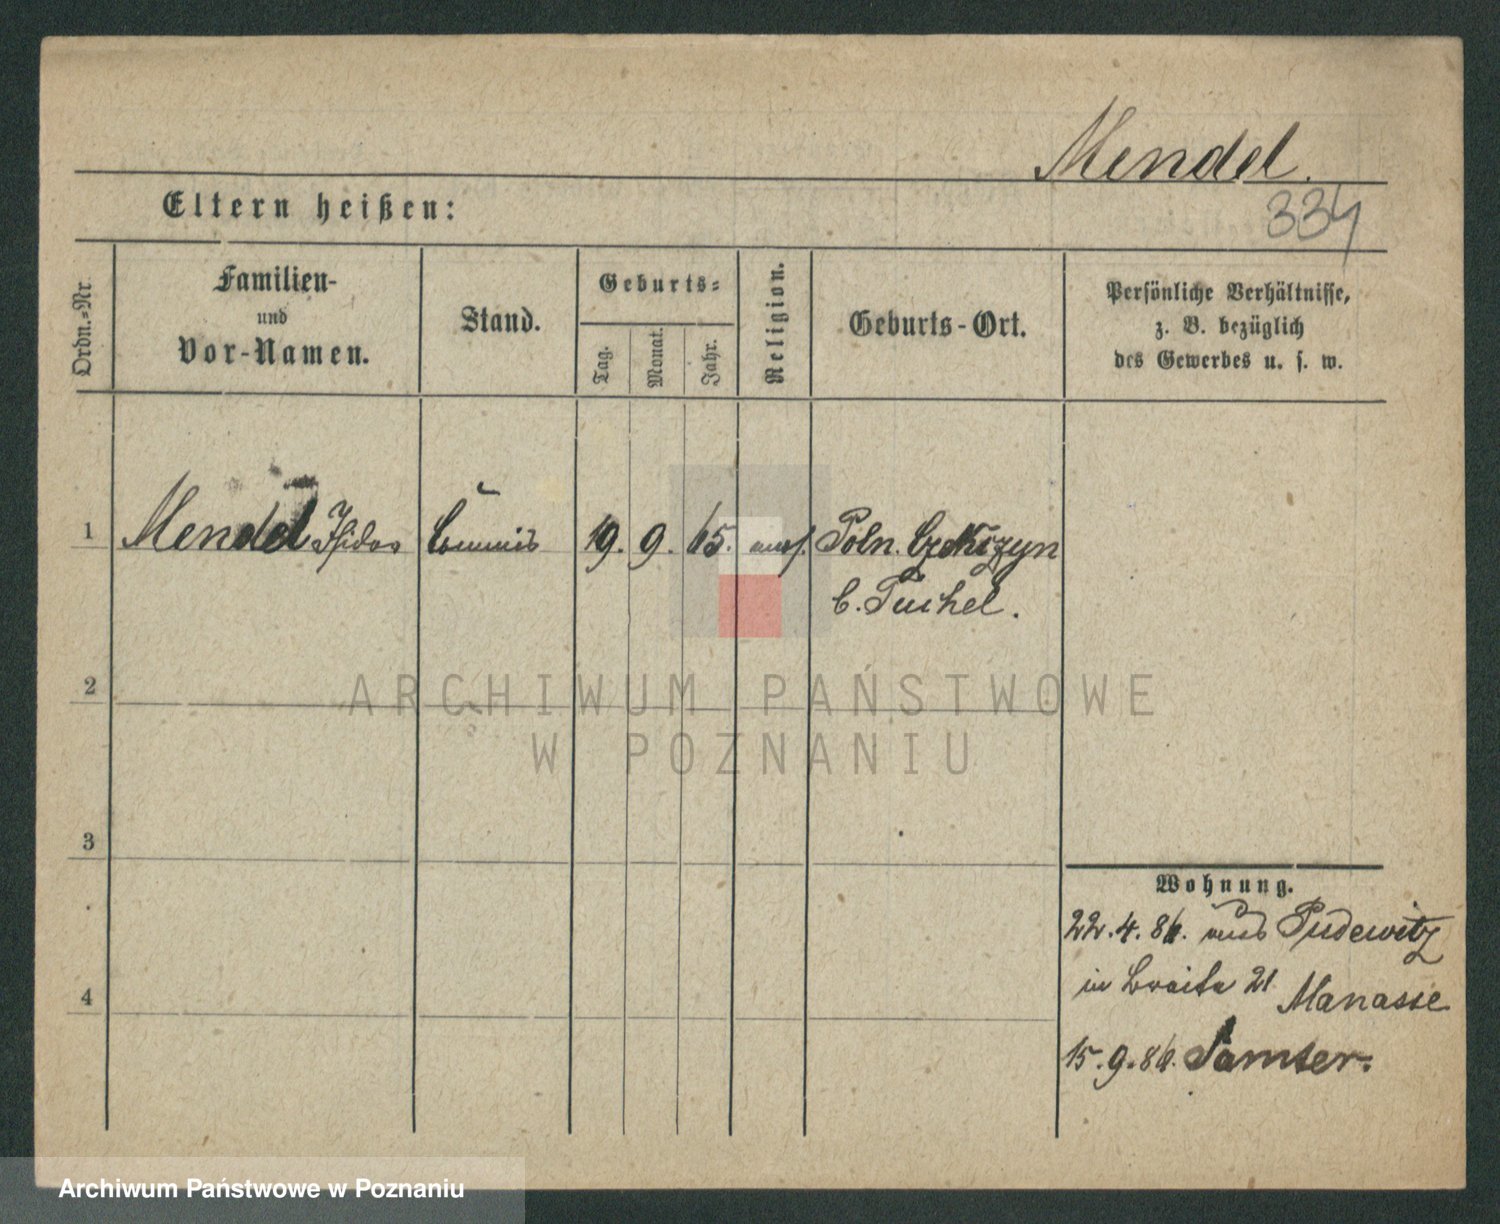 Mendel.
334
Eltern heißen:
Ordn.=Nr.
Familien-
und
Vor-Namen.
Stand.
Geburts=
Tag.
Monat.
Jahr.
Religion.
Geburts-Ort.
Persönliche Verhältnisse,
z. B. bezüglich
des Gewerbes u. s. w.
1 Mendel Isidor Commis 19. 9. 65. mos. Poln. Czekczyn
b. Tuchel.
2
3
4
Wohnung.
22.4.86. aus Pudewitz
in Breite 21 Manasse
15.9.86. Samter.
ARCHIWUM PAŃSTWOWE
W POZNANIU
Archiwum Państwowe w Poznaniu